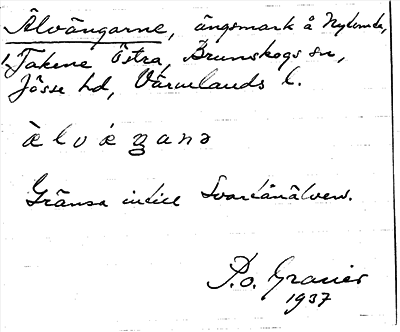 Älvängarne, ängsmark å Nylanda,
Takene Östra, Brunskogs sn,
Jösse hd, Värmlands l.
Gränsa intill Svartånälven.
P.O. Granér
1937